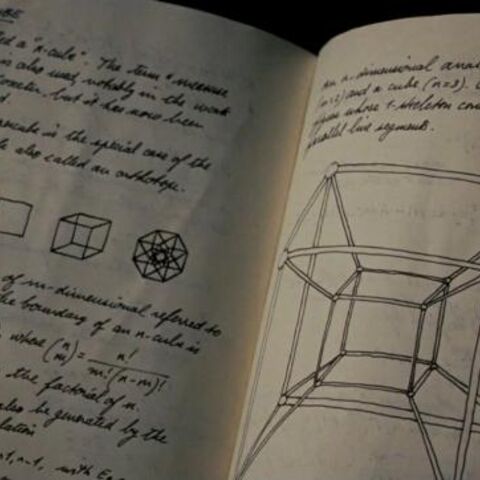 UBE
ed a "n-cube". The term "measure
is also used, notably in the work
Coxeter, but it has now been
d
ercube is the special case of the
le also called an orthotope.
of m-dimensional referred to
the boundary of an n-cube is
where (n m) = n! / m!(n-m)!
the factorial of n.
also be generated by the
lation
-1, n-1, with E
An n-dimensional ana
(n=2) and a cube (n=3).
figure whose 1-skeleton con
parallel line segments.